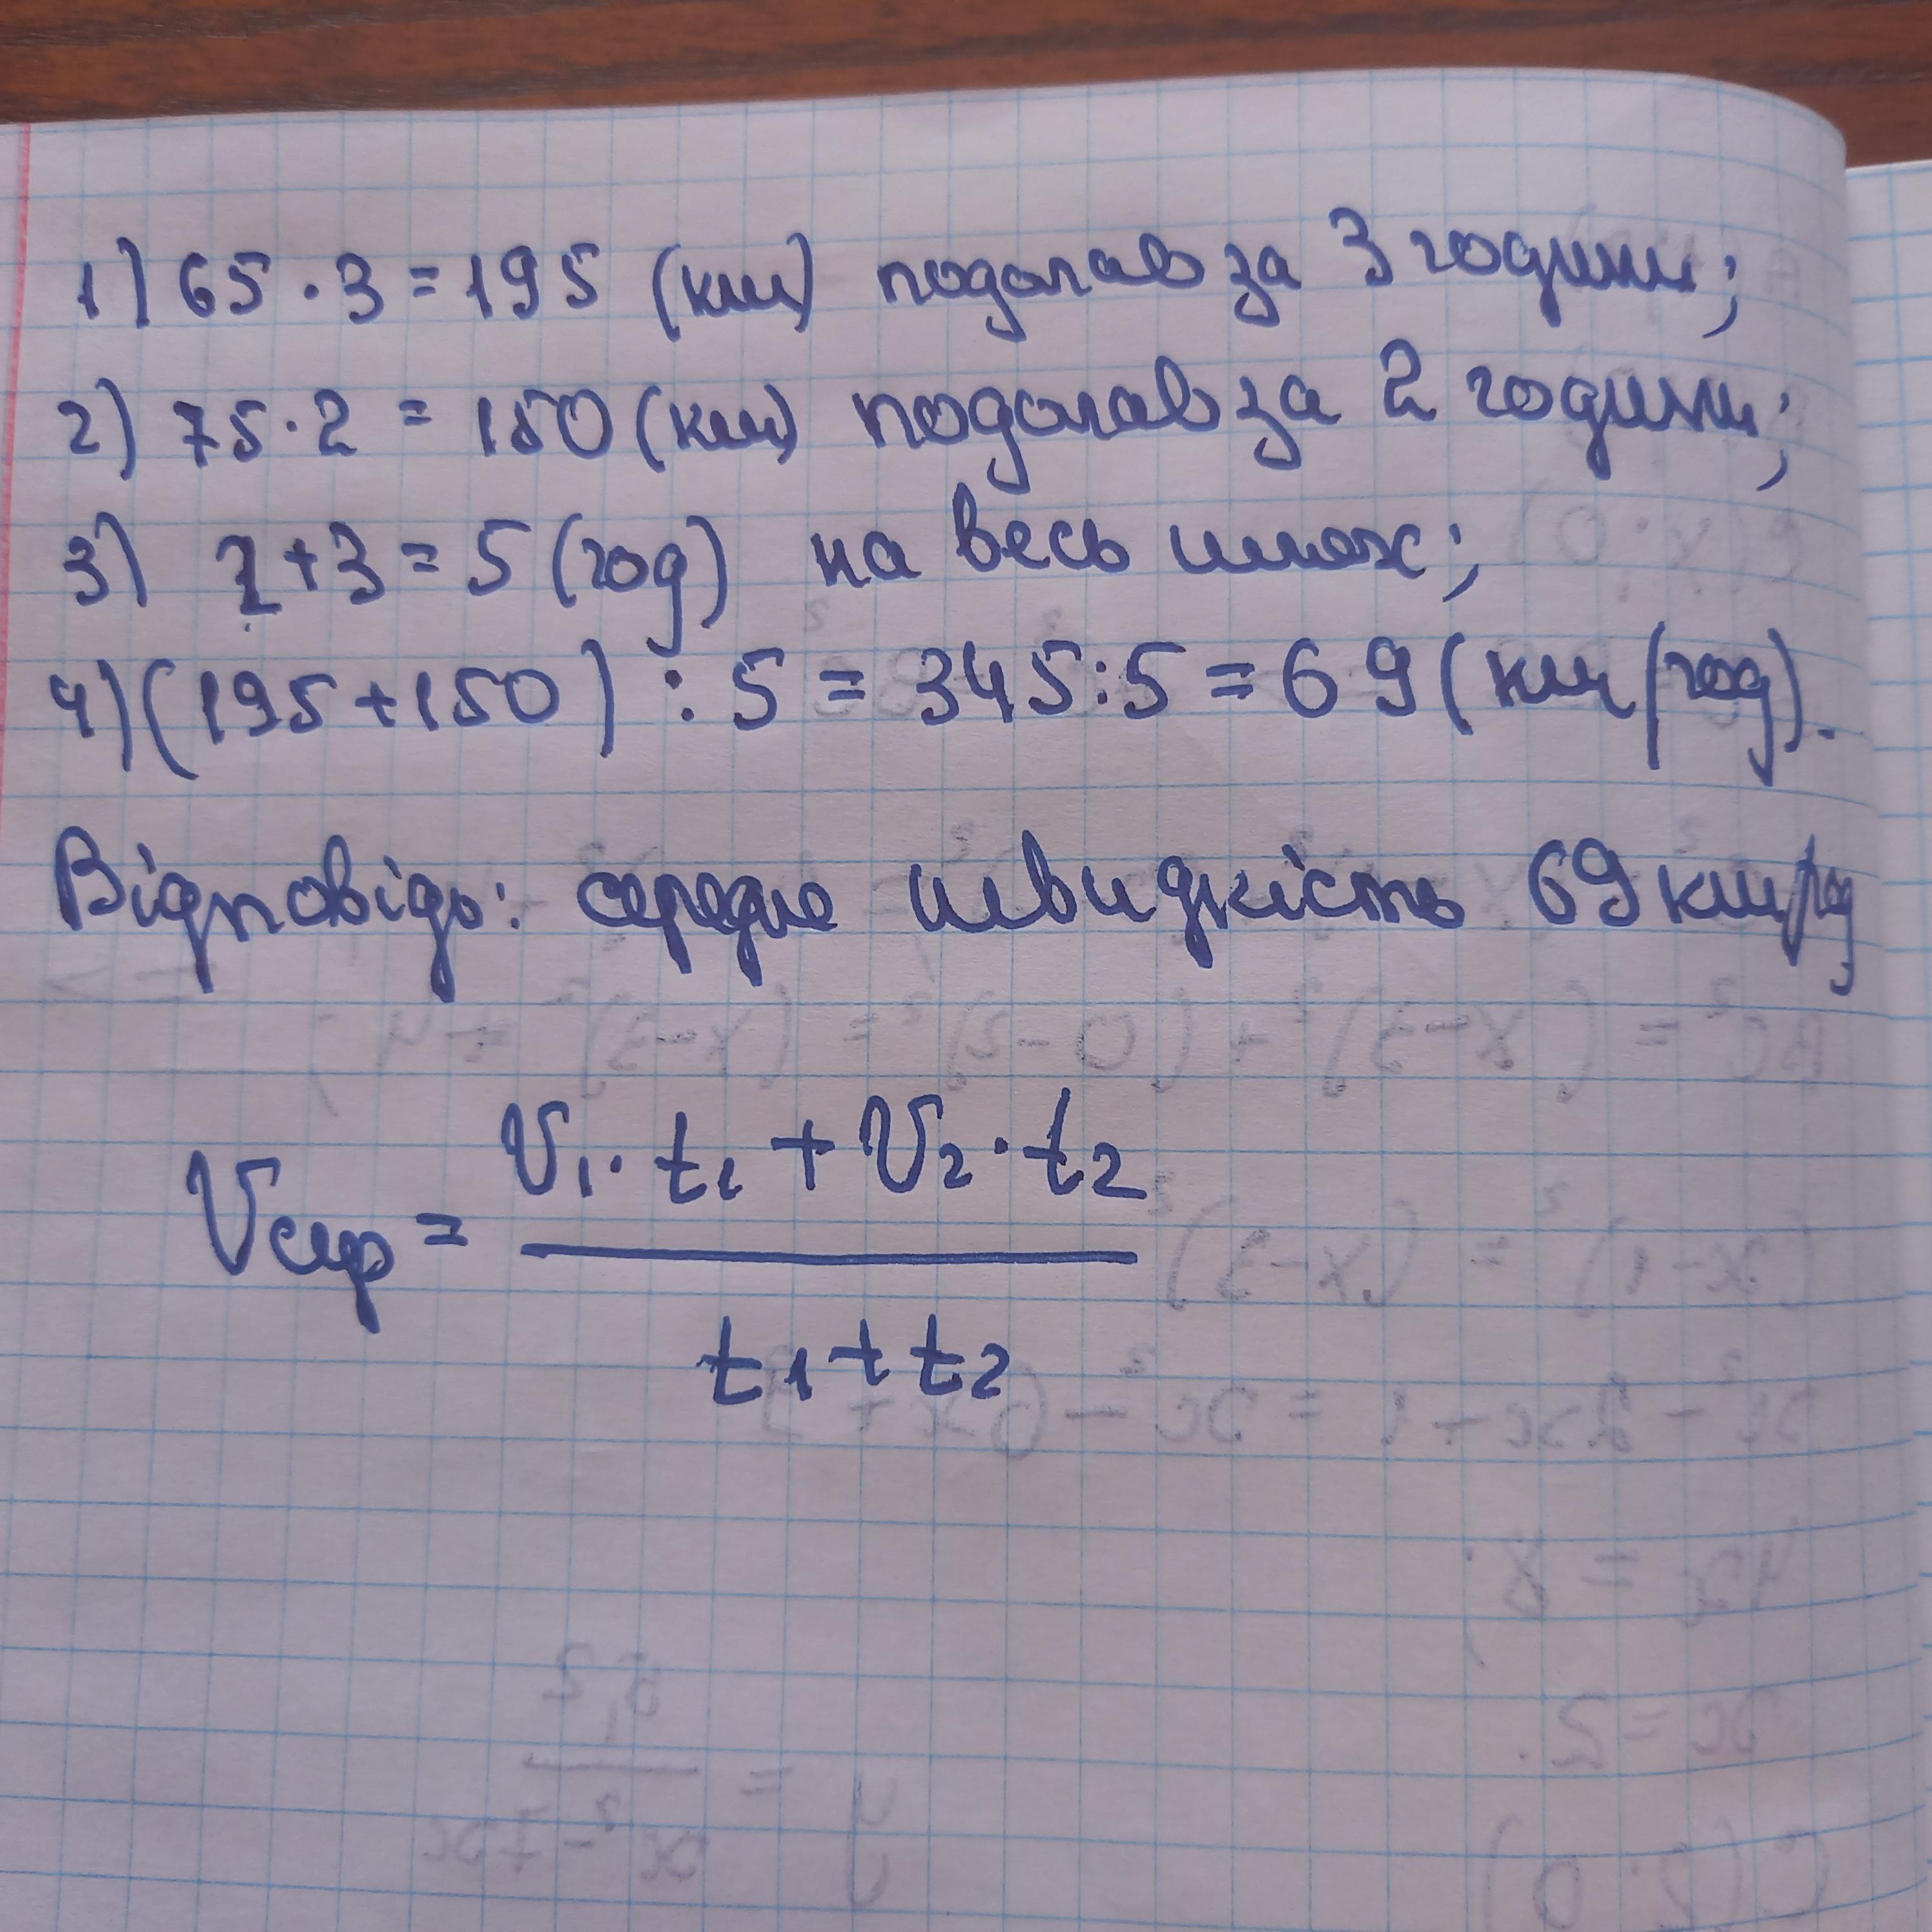 1) 65 · 3 = 195 (км) подолав за 3 години;
2) 75 · 2 = 150 (км) подолав за 2 години;
3) 2 + 3 = 5 (год) на весь шлях;
4) (195 + 150) : 5 = 345 : 5 = 69 (км/год).
Відповідь: середня швидкість 69 км/год
Vсер = (V₁ · t₁ + V₂ · t₂) / (t₁ + t₂)